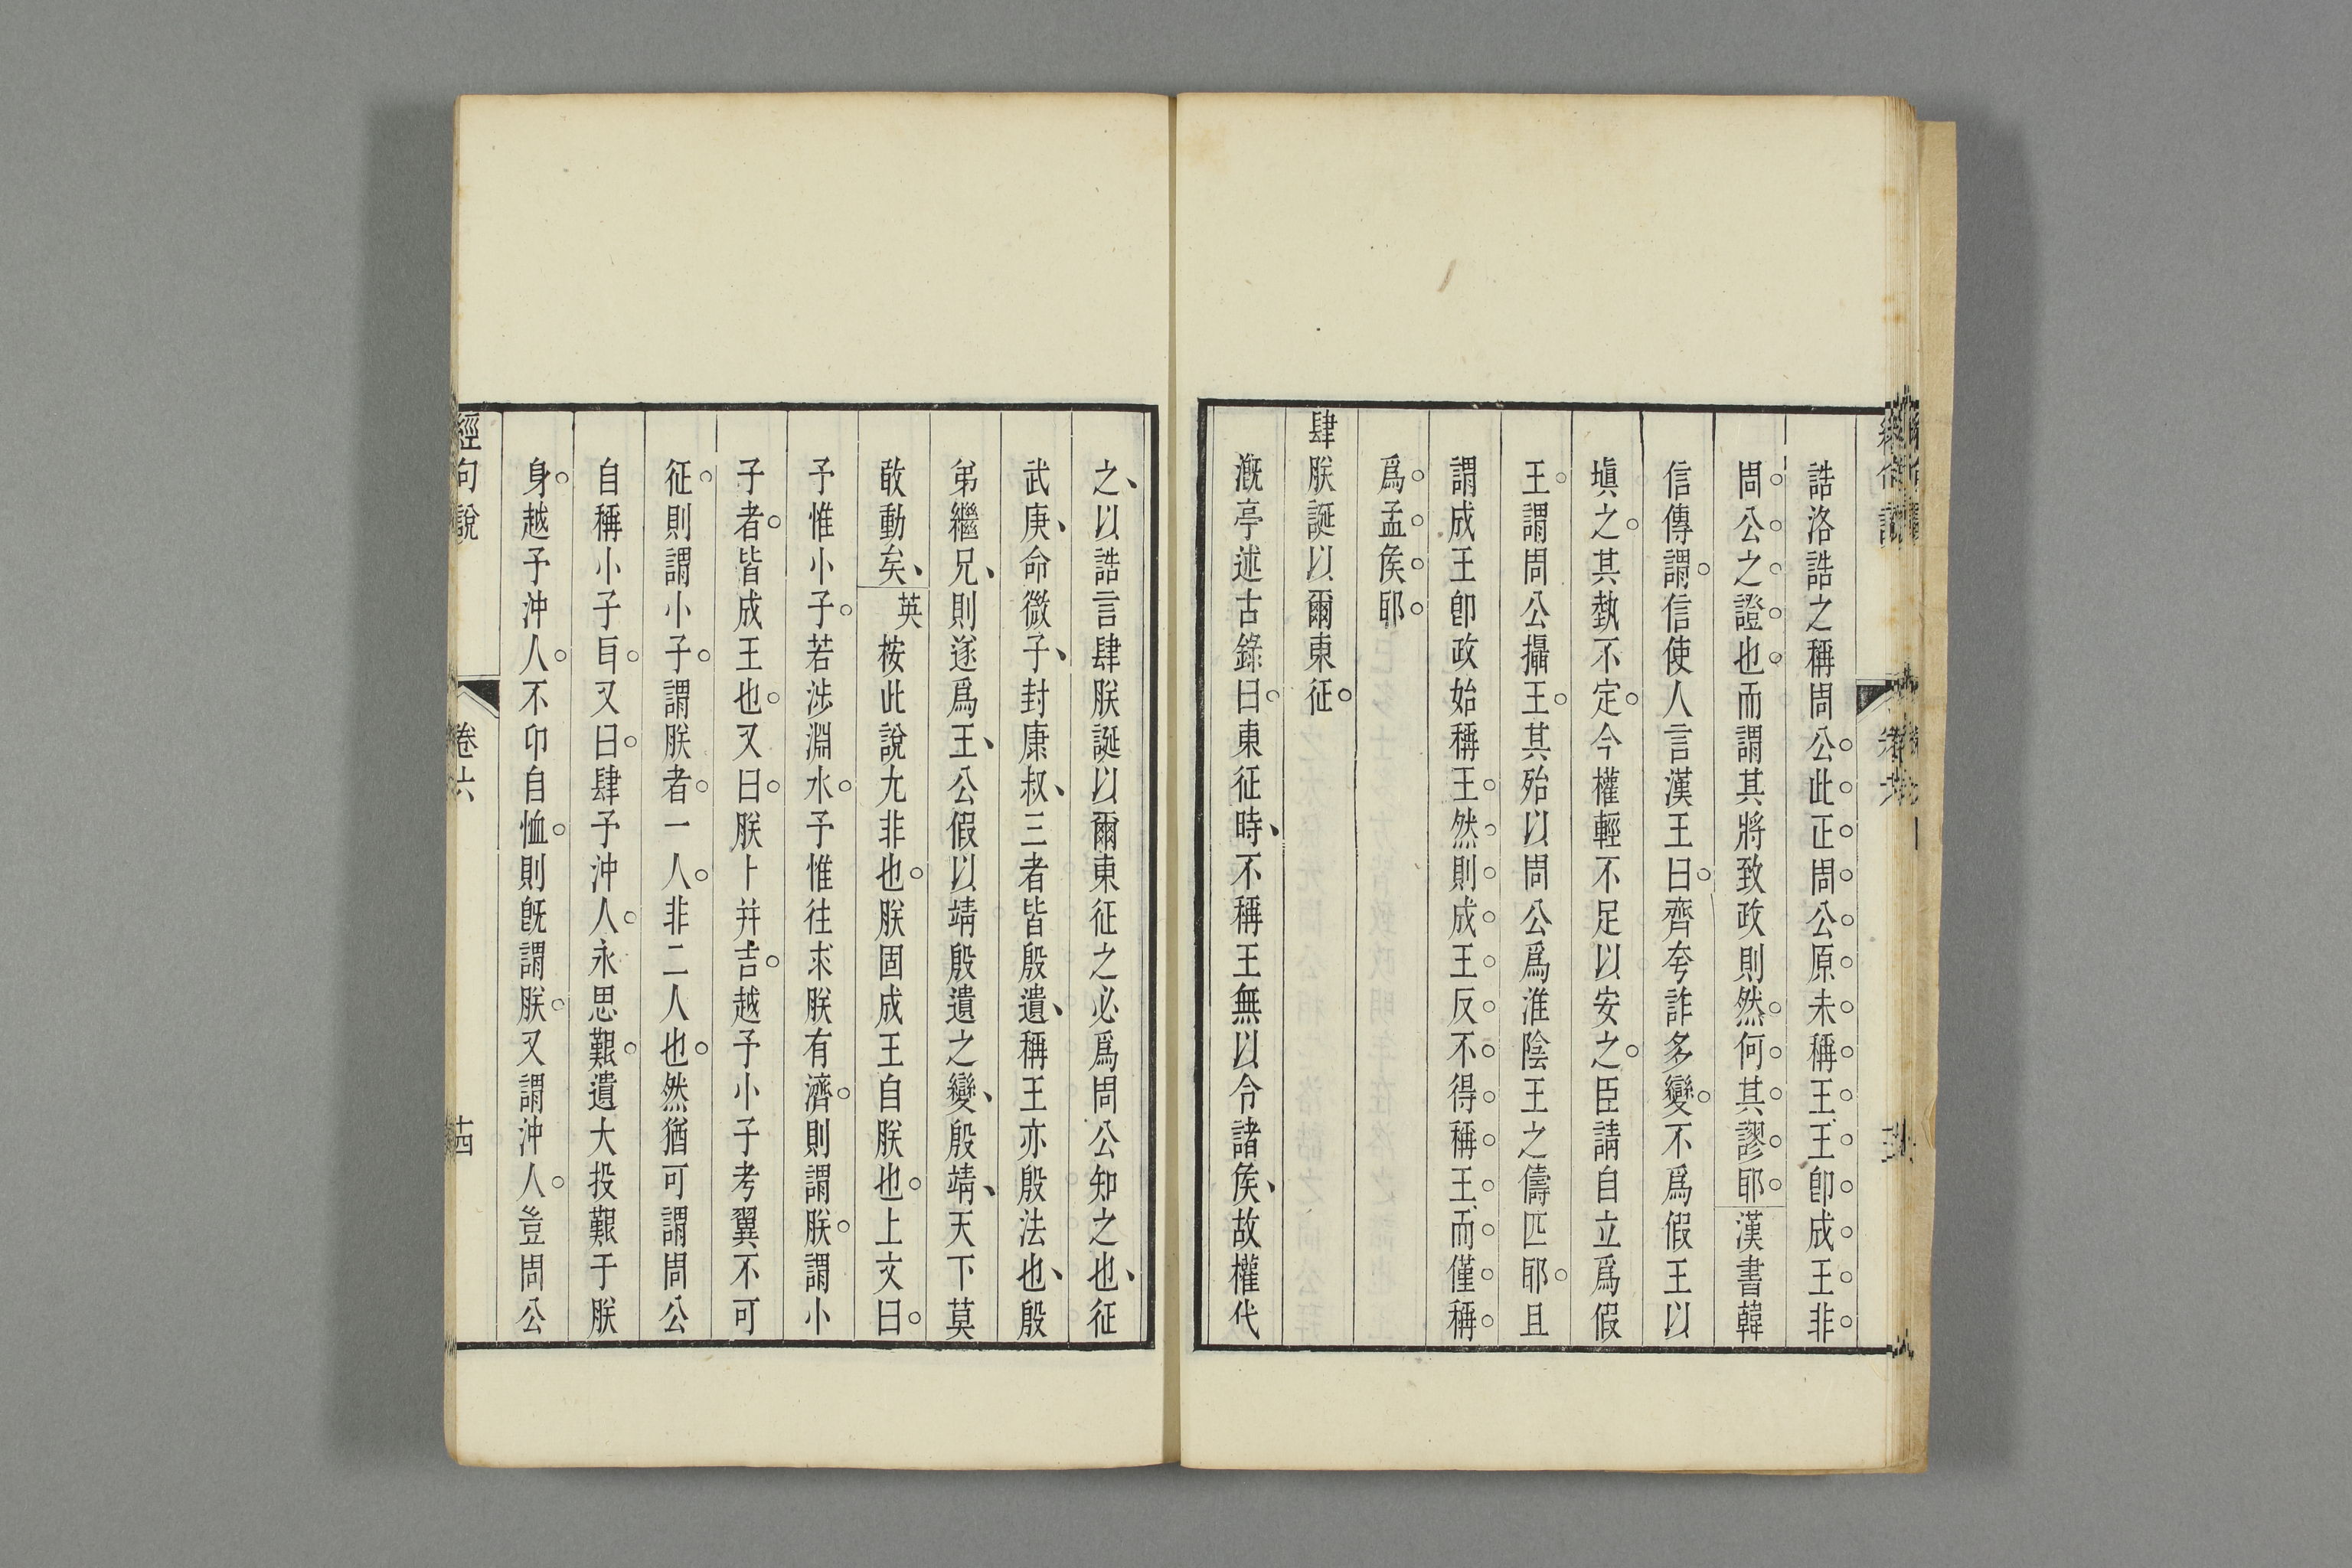 誥洛誥之稱周公此正周公原未稱王王卽成王非
周公之證也而謂其將致政則然何其謬耶漢書韓
信傳謂信使人言漢王曰齊夸詐多變不爲假王以
塡之其埶不定今權輕不足以安之臣請自立爲假
王謂周公攝王其殆以周公爲淮陰王之儔匹耶且
謂成王卽政始稱王然則成王反不得稱王而僅稱
爲孟矦耶
肆朕誕以爾東征
漑亭述古錄曰東征時不稱王無以令諸矦故權代
之以誥言肆朕誕以爾東征之必爲周公知之也征
武庚命微子封康叔三者皆殷遺稱王亦殷法也殷
弟繼兄則遂爲王公假以靖殷遺之變殷靖天下莫
敢動矣英桉此說尢非也朕固成王自朕也上文曰
予惟小子若涉淵水予惟往求朕有濟則謂朕謂小
子者皆成王也又曰朕卜幷吉越予小子考翼不可
征則謂小子謂朕者一人非二人也然猶可謂周公
自稱小子𦣞又曰肆予沖人永思艱遺大投艱于朕
身越予沖人不卬自恤則旣謂朕又謂沖人豈周公
經句說
卷六
十四